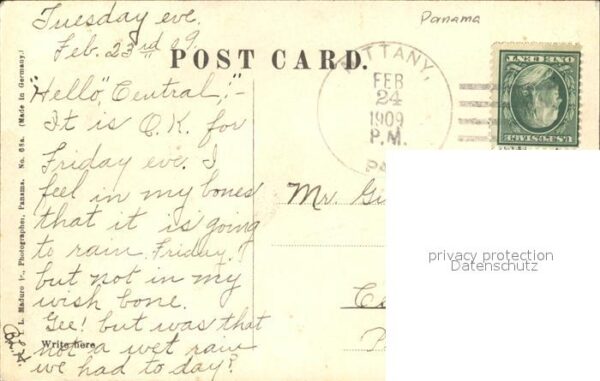 Tuesday eve.
Feb. 23rd 09.
Panama
POST CARD.
"Hello," Central;"-
It is O.K. for
Friday eve. I
feel in my bones
that it is going
to rain Friday!
but not in my
wish bone.
Gee! but was that
not a wet rain
we had to day?
Write here
L. Maduro Jr., Photographer, Panama. No. 68a. (Made in Germany.)
TTANY,
FEB
24
1909
P.M.
PA
U.S. POSTAGE
ONE CENT
Mr. Gi
privacy protection
Datenschutz